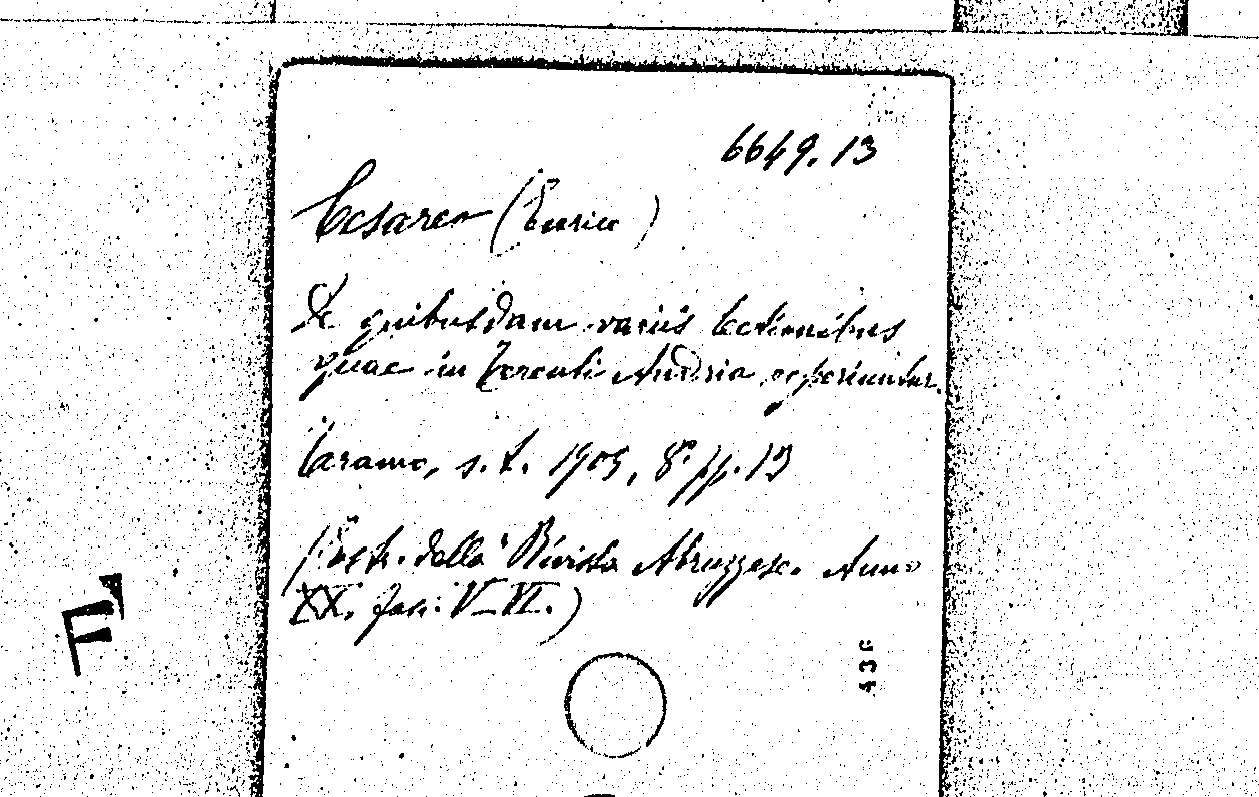 6649.13
Cesareo (Enrico)
De quibusdam variis lectionibus
quae in Terenti Andria experiuntur.
Teramo, s. t. 1905, 8° pp. 13
(Estr. della Rivista Abruzzese. Anno
XX. fasc. V-VI.)
430
F